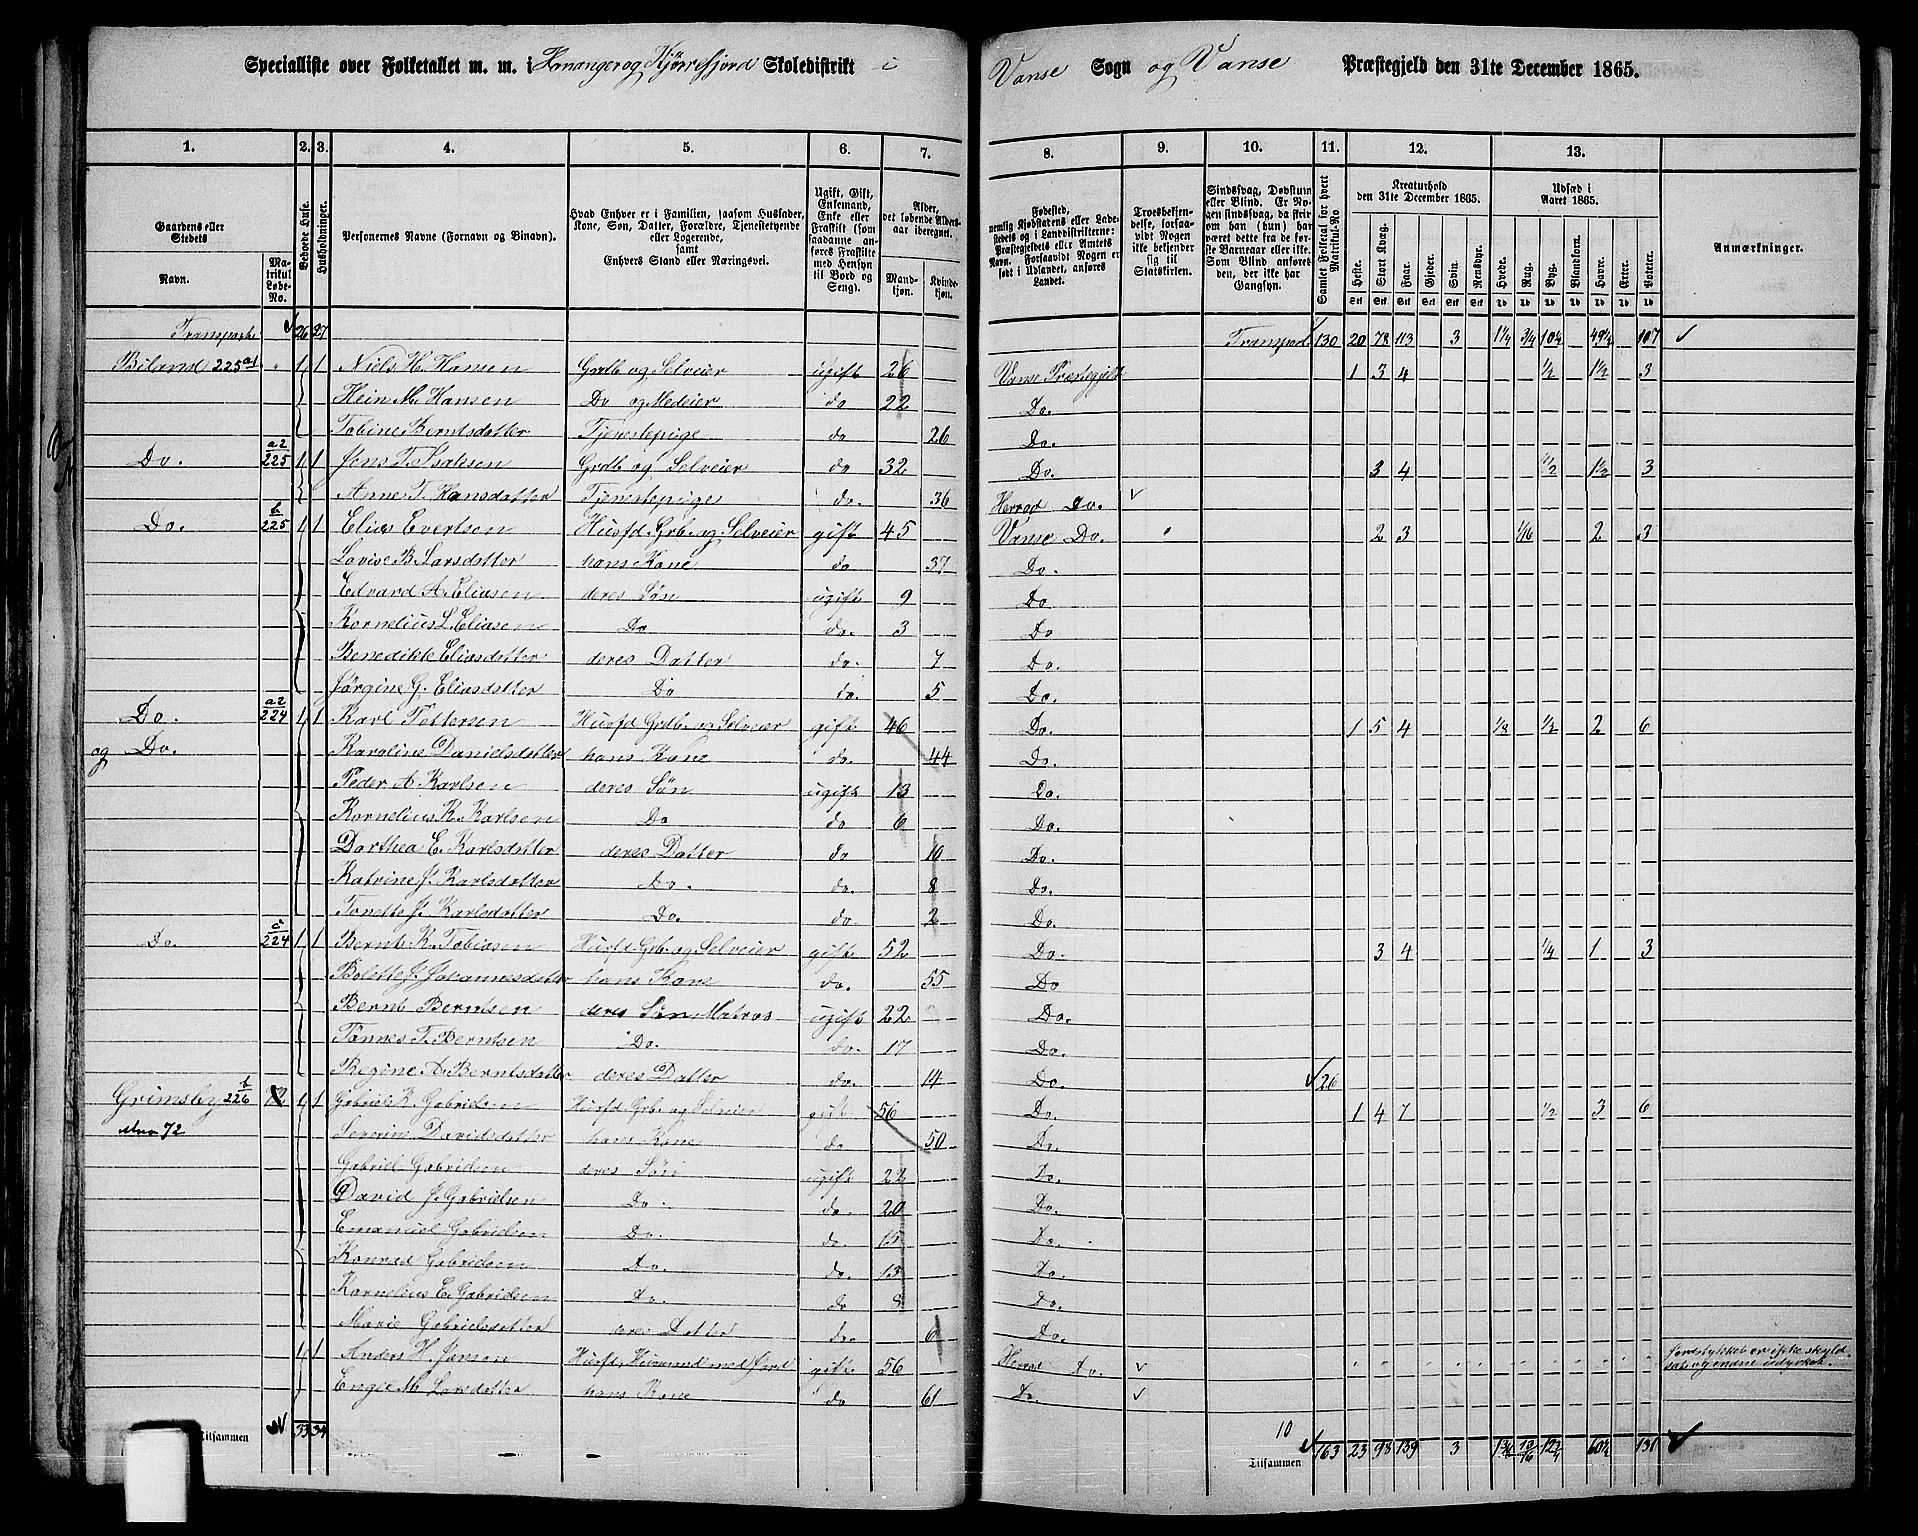 Specialliste over Folketallet m. m. i Kjørrefjord Skoledistrikt i Vanse Sogn og Vanse Præstegjeld den 31te December 1865.
1. 2. 3. 4. 5. 6. 7. 8. 9. 10. 11. 12. 13.
Gaardens eller Stedets Navn. Matrikul Løbe-No. Bebo​ede Huse. Husholdninger. Personernes Navne (Fornavn og Binavn). Hvad Enhver er i Familien, saasom Husfader, Kone, Søn, Datter, Forældre, Tjenestetyende eller Logerende, samt Enhvers Stand eller Næringsvei. Ugift, Gift, Enkemand, Enke eller Fraskilt (som saadanne anføres Fraskilte med Hensyn til Bord og Seng). Alder, det løbende Aldersaar iberegnet. Mandkjøn. Kvindekjøn.
Fødested, nemlig Kjøbstadens eller Ladestedets eller i Landdistrikterne: Præstegjeldets eller Amtets Navn. Forsaavidt Nogen er født i Udlandet, anføres Landet. Troesbekjendelse, forsaavidt Nogen ikke bekjender sig til Statskirken. Sindssvag, Døvstum eller Blind. Er Nogen sindssvag, da skrives om han (hun) har været dette fra de første Barneaar eller ikke. Som Blind anføres den, der ikke har Gangsyn. Samlet Folketal for hvert Matrikul-No. Kreaturhold den 31te December 1865. Heste. Stort Kvæg. Faar. Gjeder. Svin. Rensdyr. Udsæd i Aaret 1865. Hvede. Rug. Byg. Blandkorn. Havre. Erter. Poteter. Anmærkninger.
Transport 26 27 Transport 130 20 78 113 3 1¼ ¾ 10¼ 49¼ 107
Biland 225 a1 1 1 Niels H. Hansen Grdb og Selveier ugift 26 Vanse Præstegjeld 1 3 4 ½ 1½ 3
Hein M. Hansen Do og Medeier do 22 Do.
Tobine Berntsdatter Tjenestepige do 26 Do.
Do. 225 a2 1 1 Jens T. Isaksen Grdb og Selveier do 32 Do. 3 4 ½ 1½ 3
Anne T. Hansdatter Tjenestepige do. 36 Herrad Do.
Do. 225 b 1 1 Elias Evertsen Husfd. Grb. og Selveier gift 45 Vanse Do. 2 3 1/16 2 3
Lovise B. Larsdatter hans Kone do 37 Do.
Edvard A. Eliasen deres Søn ugift 9 Do
Kornelius L. Eliasen Do do. 3 Do
Benedikte Eliasdatter deres Datter do. 7 Do.
Jørgine G. Eliasdatter Do do. 5 Do.
Do. 224 a2 1 1 Karl Pettersen Husfd Grdb. og Selveier gift 46 Do. 1 5 4 1/8 ½ 2 6
og Do. Karoline Danielsdatter hans Kone do. 44 Do.
Peder A. Karlsen deres Søn ugift 13 Do.
Kornelius K. Karlsen Do do 6 Do.
Dorthea E. Karlsdatter deres Datter do 10 Do.
Katrine J. Karlsdatter Do. do. 8 Do.
Tonette J. Karlsdatter Do. do. 2 Do.
Do. 224 c 1 1 Bernt K. Tobiasen Husfd. Grb. og Selveier gift 52 Do. 3 4 ¼ 1 3
Bolette J. Johannesdatter hans Kone do. 55 Do
Bernt Berntsen deres Søn Matros ugift 22 Do.
Tønnes T. Berntsen Do. do. 17 Do.
Regine A. Berntsdatter deres Datter do. 14 Do. 26
Grimsby 226 b 1 1 Gabriel K. Gabrielsen Husfd. Grb. og Selveier gift 56 Do. 1 4 7 ½ 3 6
72 Severine Davidsdatter hans Kone do 50 Do.
Gabriel Gabrielsen deres Søn ugift 22 Do.
David J. Gabrielsen Do. do. 20 Do.
Emanuel Gabrielsen Do. do. 15 Do.
Konrad Gabrielsen Do. do. 13 Do.
Kornelius E. Gabrielsen Do. do 8 Do.
Marie Gabrielsdatter deres Datter do. 6 Do.
1 1 Anders H. Jansen Husfd. Huusmand med Jord gift 56 Herrad Do. Jordstykket er ikke skyldsat og endne udyrket.
Engel M. Larsdatter hans Kone do 61 Do.
Tilsammen 33 34 10 Tilsammen 163 23 98 139 3 131